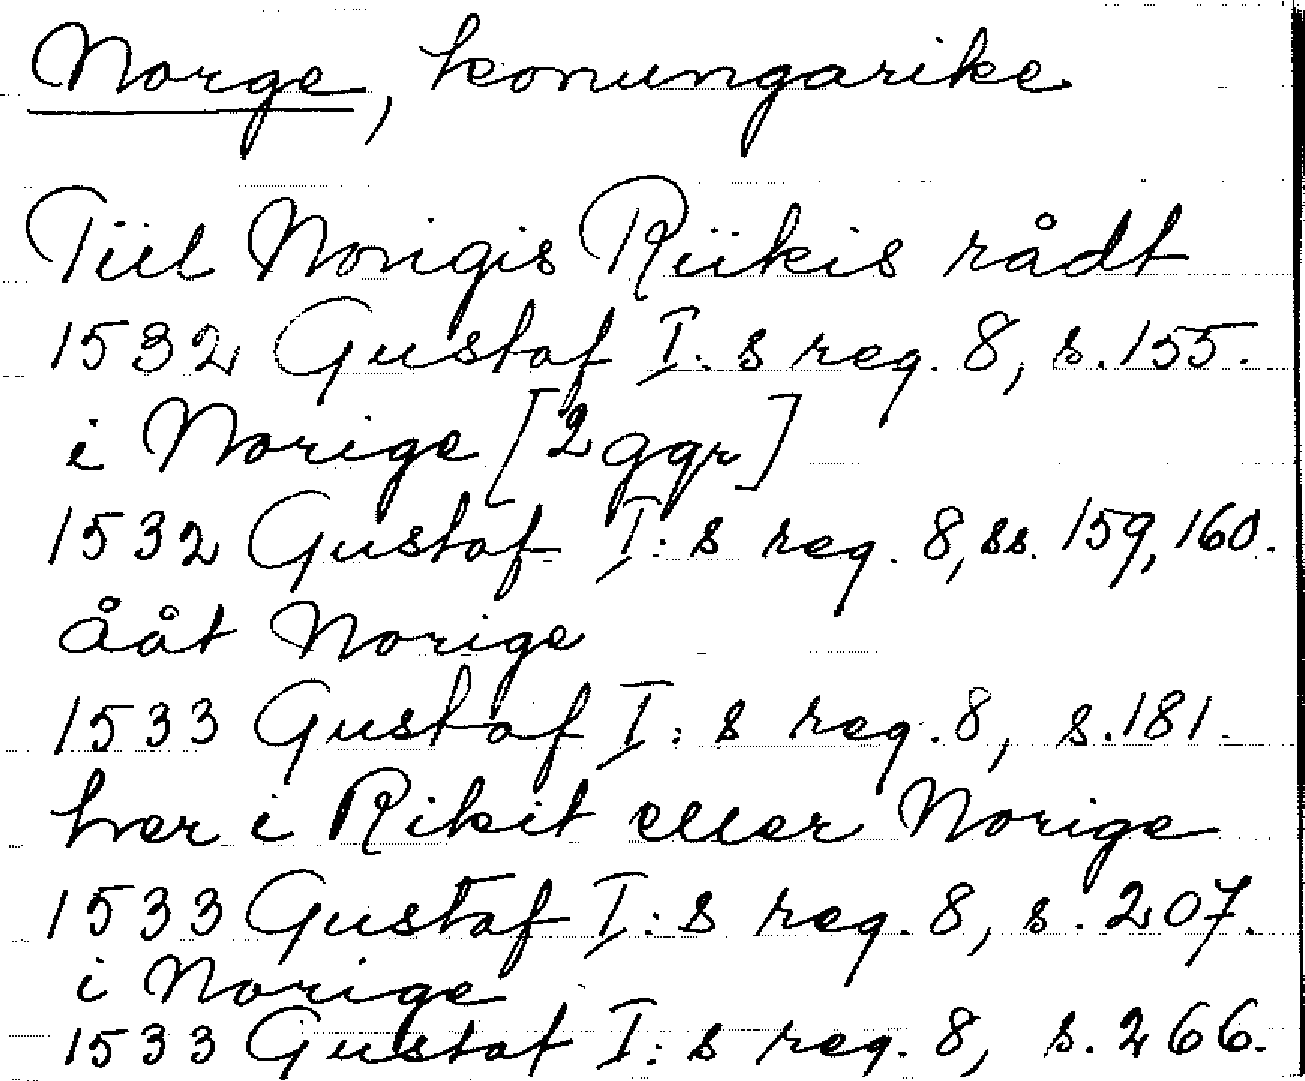 Norge, konungarike
Tiil Norigis Riikis rådt
1532 Gustaf I:s reg. 8, s. 155.
i Norige [2 ggr]
1532 Gustaf I:s reg. 8, ss. 159, 160.
ååt Norige
1533 Gustaf I:s reg. 8, s. 181.
hver i Rikit eller Norige
1533 Gustaf I:s reg. 8, s. 207.
i Norige
1533 Gustaf I:s reg. 8, s. 266.